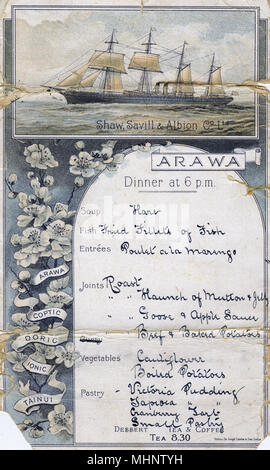 Shaw, Savill & Albion Co. Ltd
ARAWA
Dinner at 6 p.m.
Soup Hare
Fish Fried Fillets of Fish
Entrées Poulet a la Marengo
Joints Roast
" " Haunch of Mutton & Jelly
" " Goose & Apple Sauce
Beef & Baked Potatoes
Vegetables Cauliflower
Boiled Potatoes
Pastry Victoria Pudding
Tapioca " "
Cranberry Tart
Small Pastry
DESSERT TEA & COFFEE
TEA 8.30
ARAWA
COPTIC
DORIC
IONIC
TAINUI
alamy
Image ID: MHNTYH
www.alamy.com